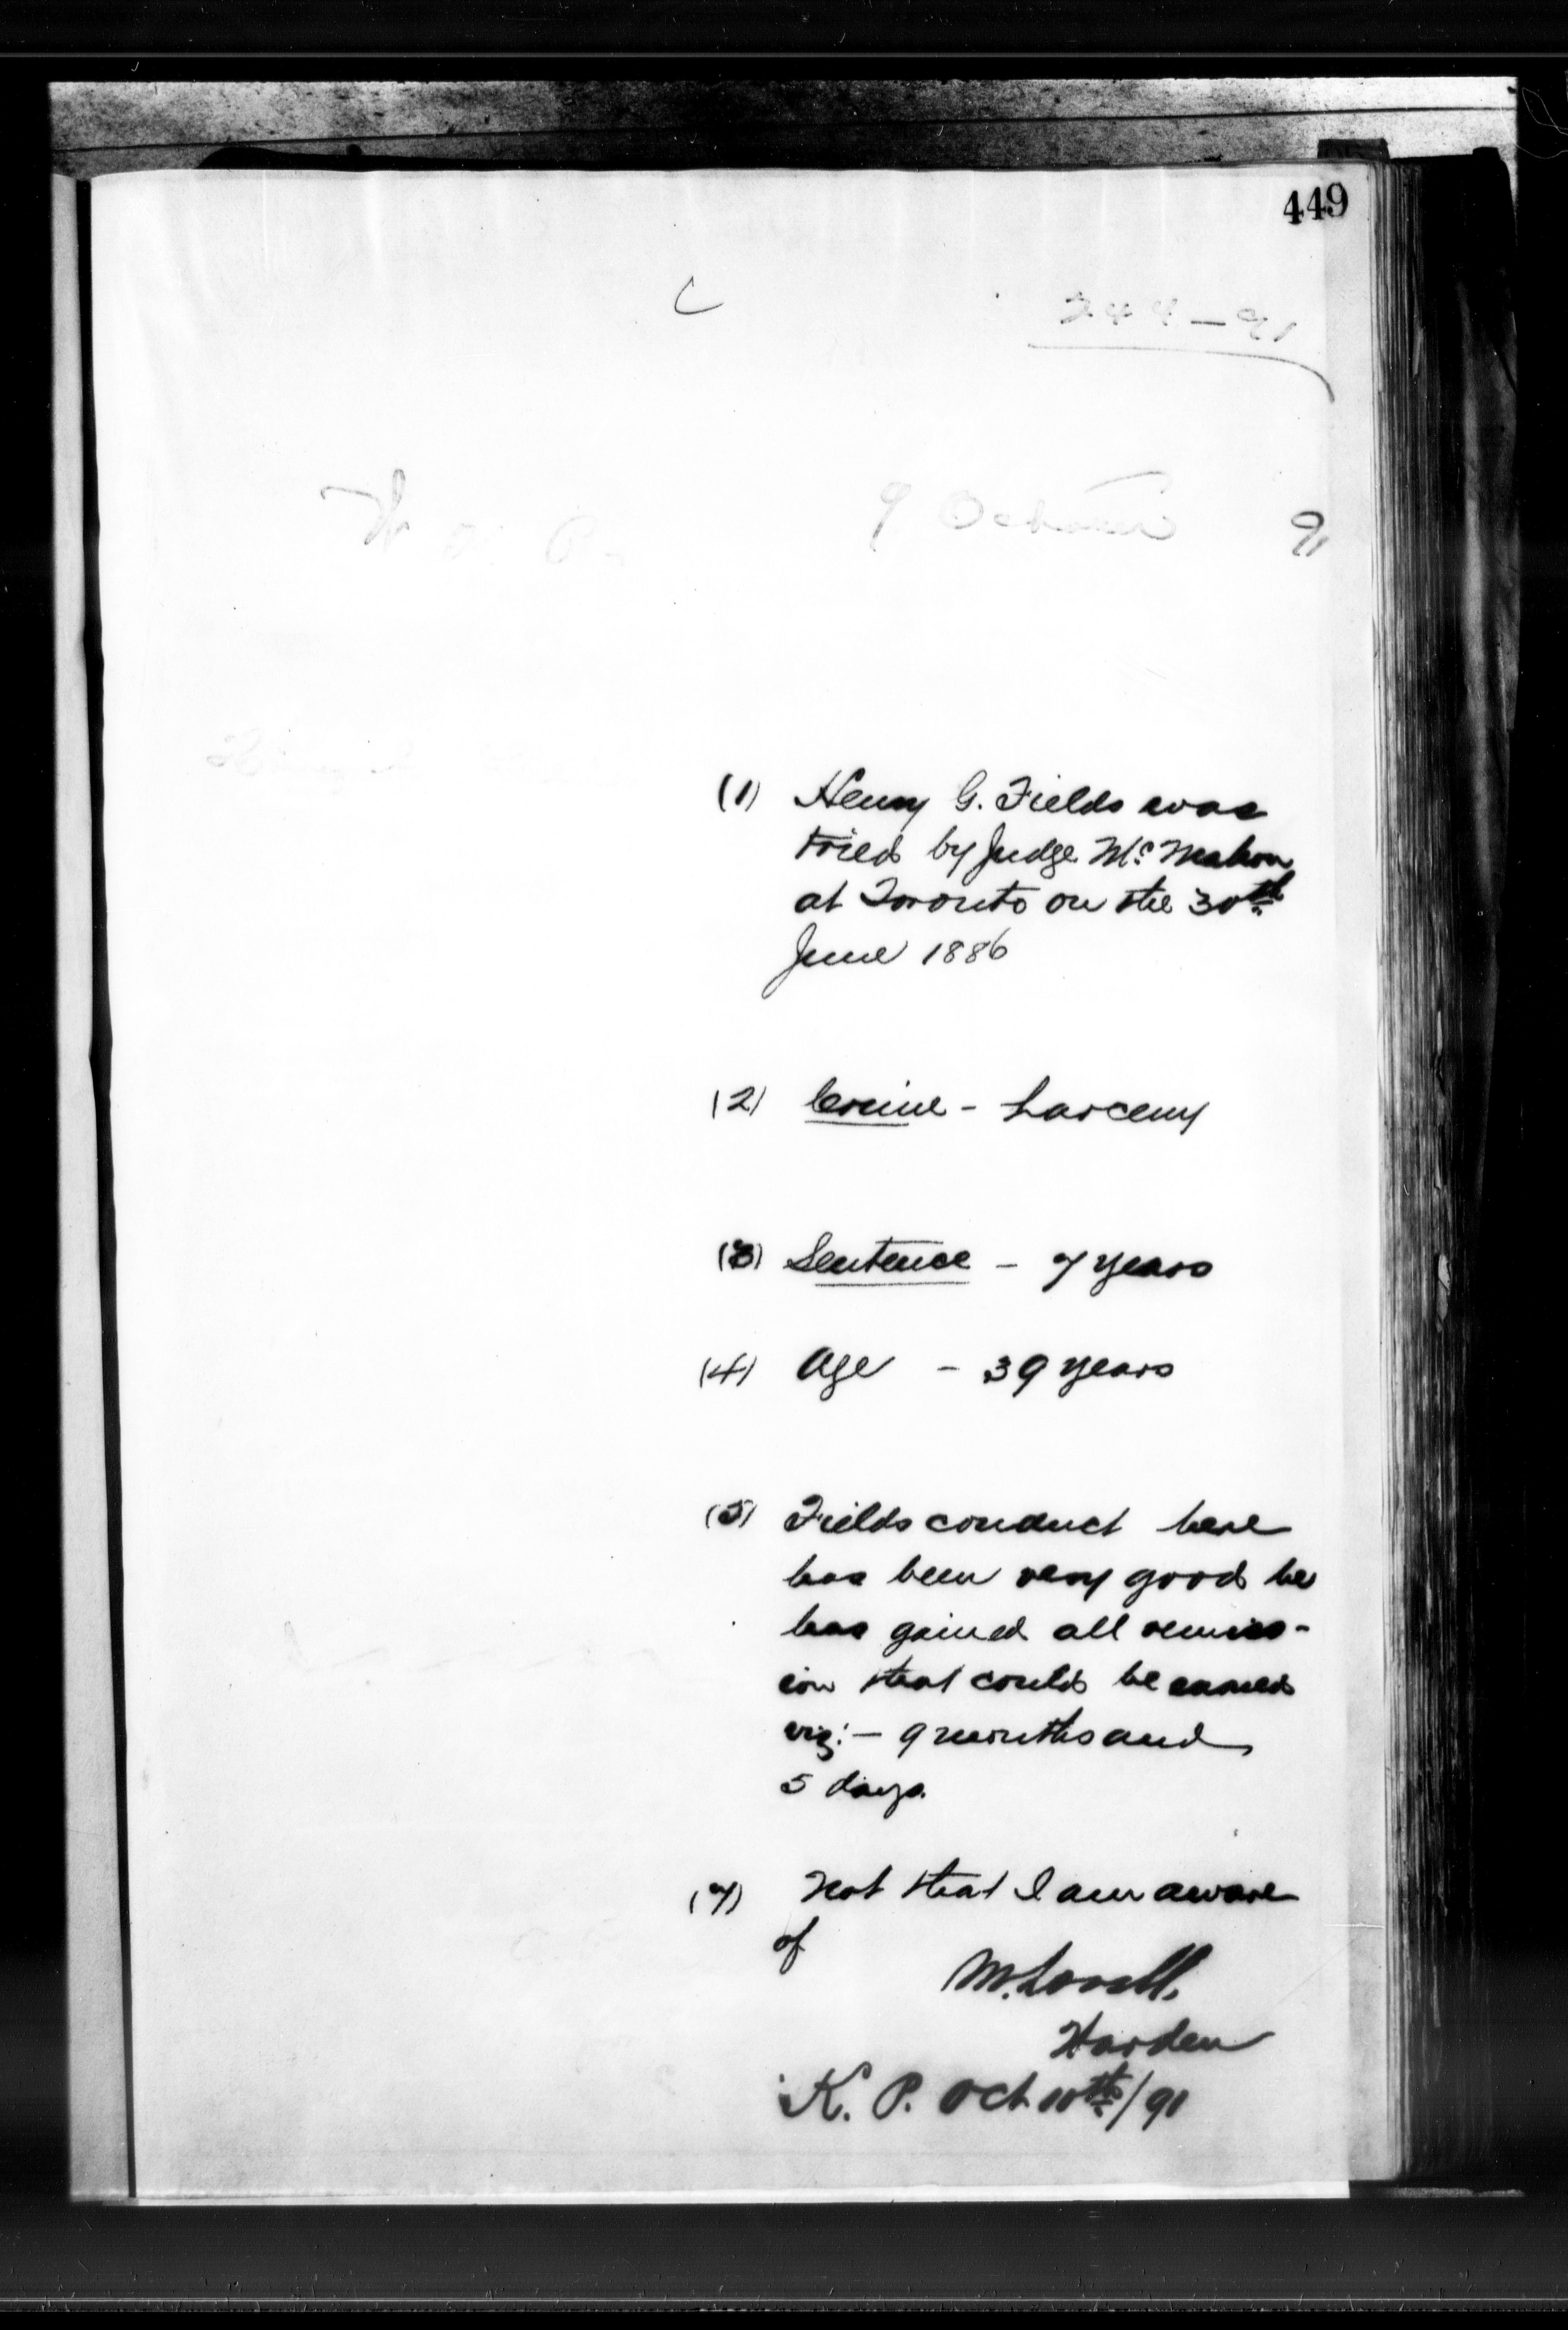 449
C
244-91
9 October 91
(1) Henry G. Fields was
tried by Judge Mc Mahon
at Toronto on the 30th
June 1886
(2) Crime - Larceny
(3) Sentence - 7 years
(4) Age - 39 years
(5) Fields conduct here
has been very good he
has gained all remiss-
ion that could be earned
viz:- 9 months and
5 days.
(7) Not that I am aware
of
M. Lavell.
Warden
K. P. Oct 10th/91